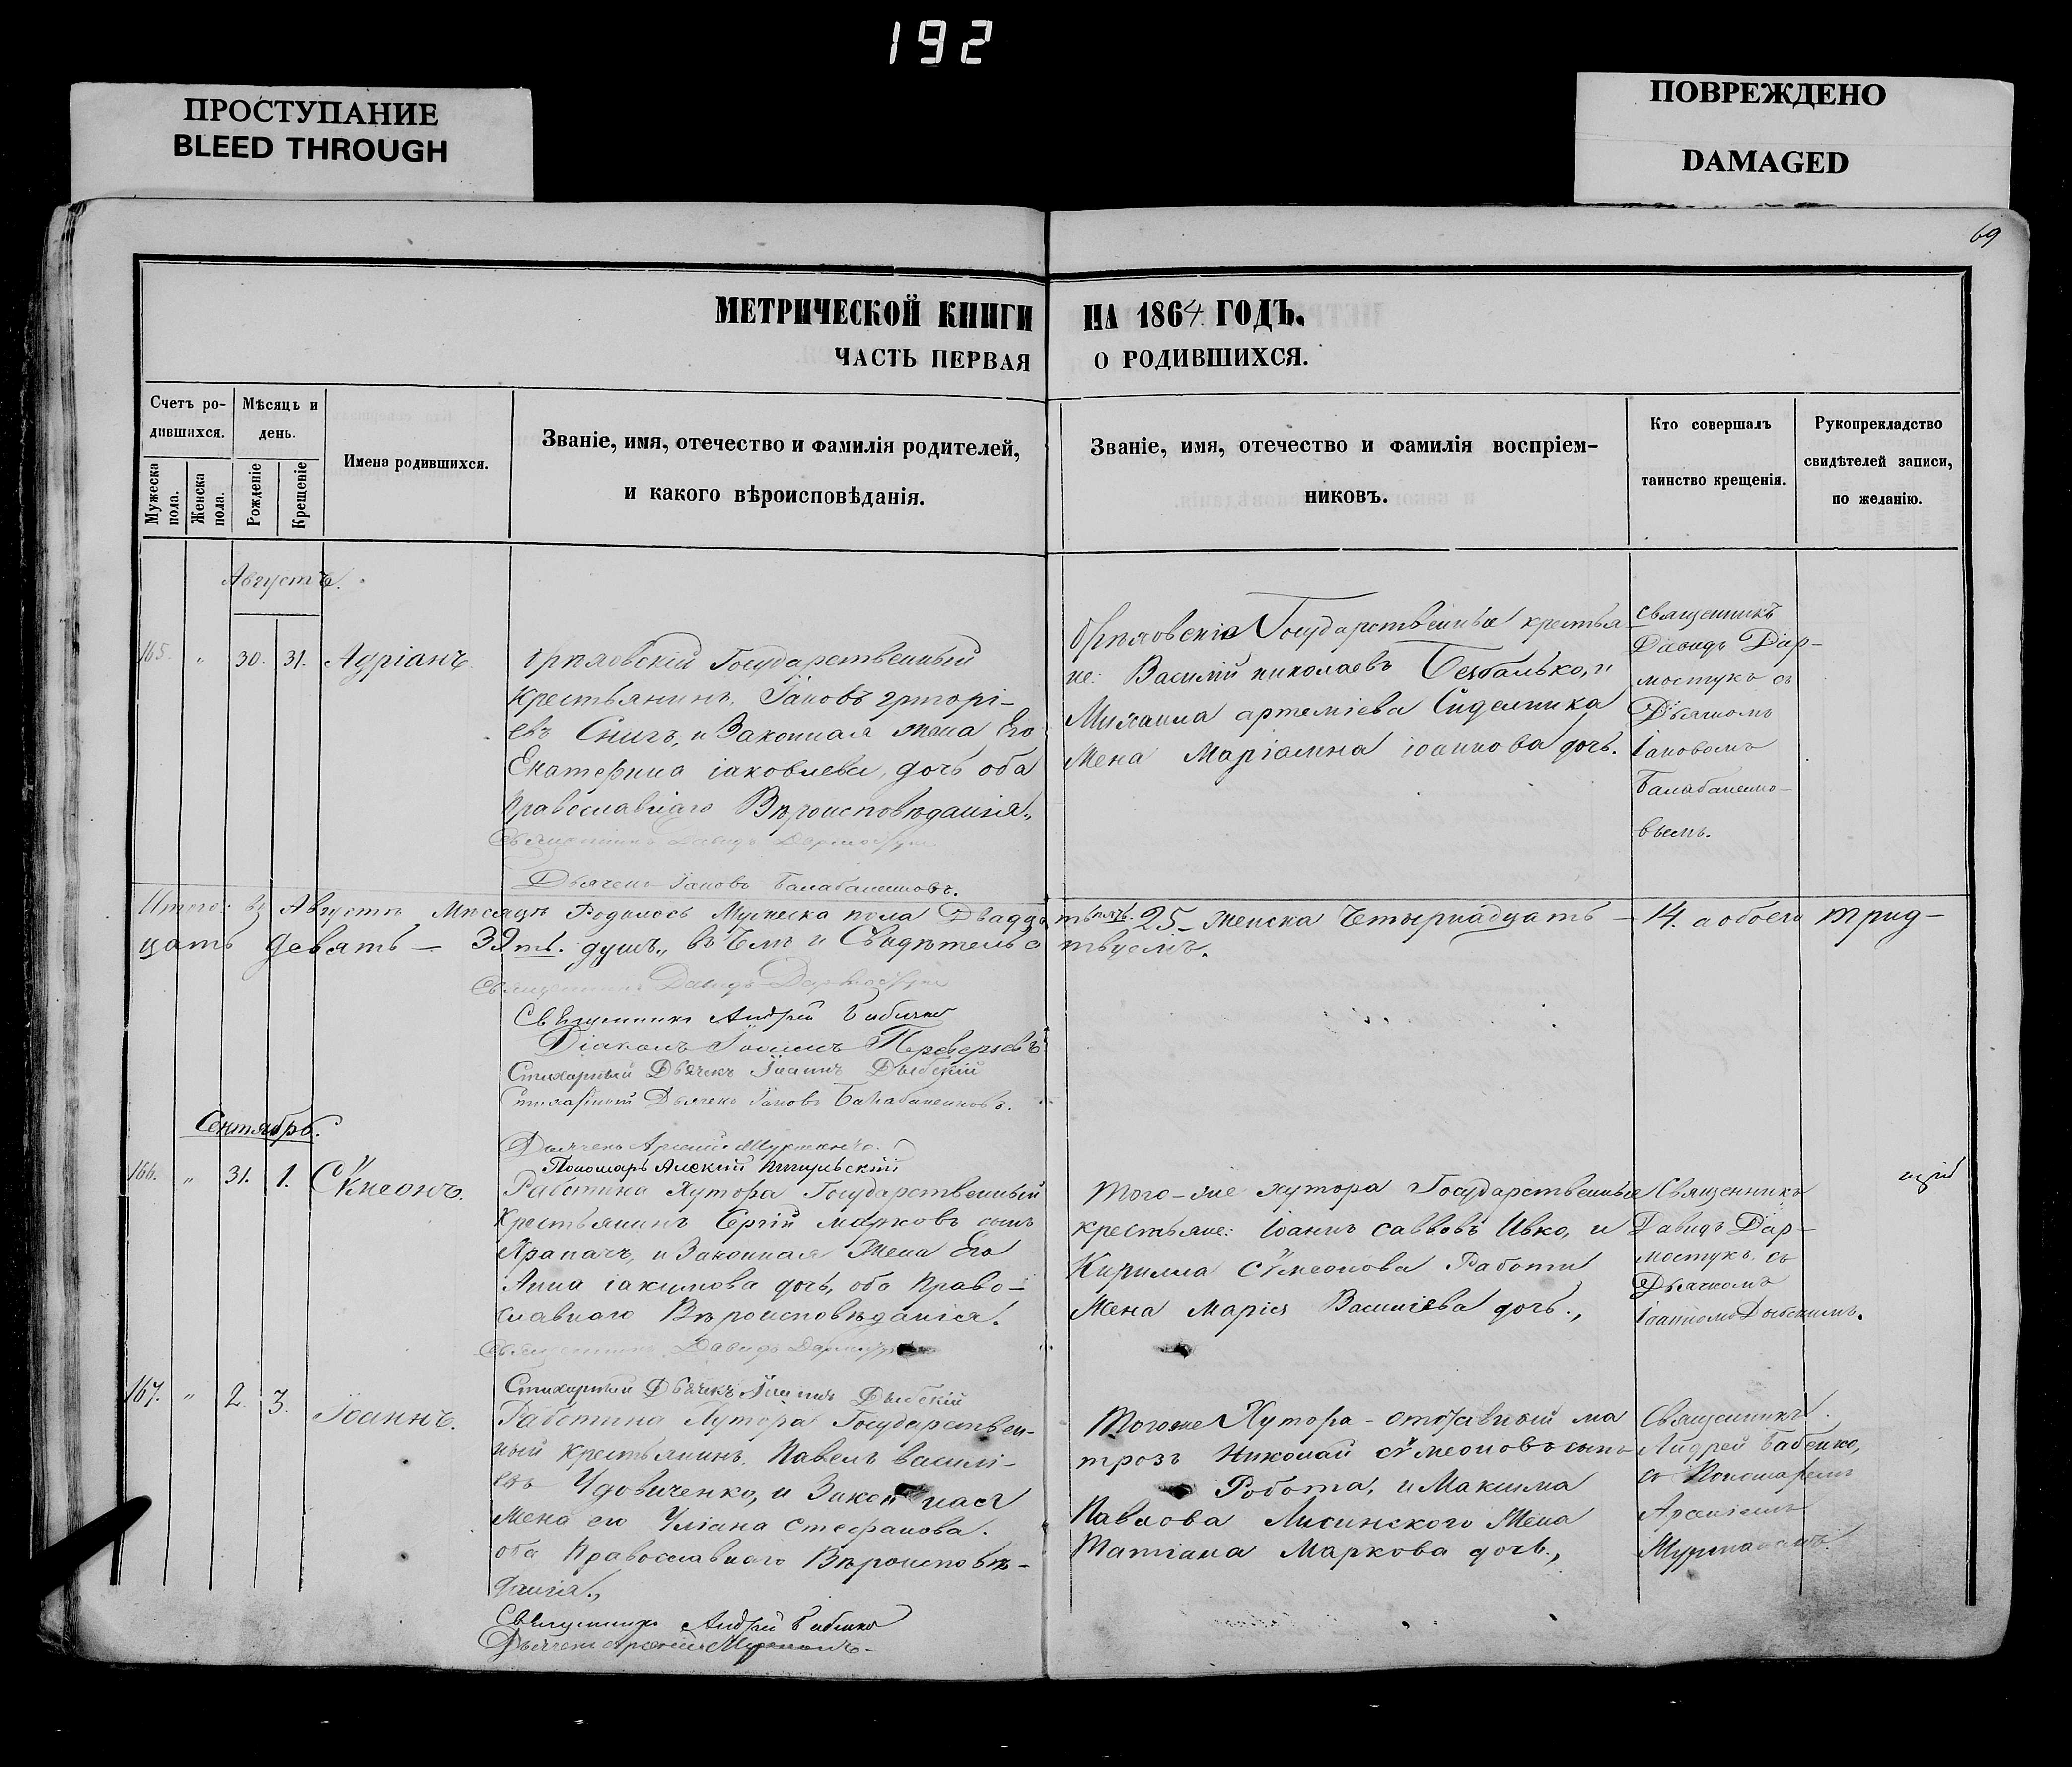 192
ПРОСТУПАНИЕ
BLEED THROUGH
ПОВРЕЖДЕНО
DAMAGED
69
МЕТРИЧЕСКОЙ КНИГИ НА 1864 ГОДЪ.
ЧАСТЬ ПЕРВАЯ О РОДИВШИХСЯ.
Счетъ ро-
дившихся.
Мужеска пола.
Женска пола.
Мѣсяцъ и
день.
Рожденіе
Крещеніе
Имена родившихся.
Званіе, имя, отечество и фамилія родителей,
и какого вѣроисповѣданія.
Званіе, имя, отечество и фамилія воспріем-
никовъ.
Кто совершалъ
таинство крещенія.
Рукоприкладство
свидѣтелей записи,
по желанію.
Августъ.
165. " 30. 31. Адріанъ.
Государственный
Крестьянинъ, Іаковъ григорі-
евъ Снигъ, и Законная жена Его
Екатерина іаковлева, дочь оба
Православнаго Вѣроисповѣданія.,
Священникъ Давидъ Дармостукъ
Дьячекъ Іаковъ Балабаненковъ.
Государственные крестья
не: Василій николаевъ Безбалько, и
Михаила артеміева Сиделника
Жена Маріамна іоаннова дочь.
Священникъ
Давидъ Дар-
мостукъ съ
Дьячкомъ
Іаковомъ
Балабаненко-
вымъ.
Итого: въ Августѣ Мѣсяцѣ Родилось Мужеска пола Двадцать пять. 25_ Женска Четырнадцать — 14. а обоего трид-
цать девять — 39ть. душъ., въ Чемъ и Свидѣтельствуемъ.
Священникъ Давидъ Дармостукъ
Священникъ Андрей Бабенко
Діаконъ Іоаннъ Переверзевъ
Стихарный Дьячекъ Іоаннъ Дыбскій
Стихарный Дьячекъ Іаковъ Балабаненковъ.
Дьячекъ Арсеній
Пономарь Алексій
Сентябрь.
166. " 31. 1. Сѵмеонъ.
Работина Хутора Государственный
Крестьянинъ Сергій марковъ сынъ
Храпачъ, и Законная Жена Его
Анна іакимова дочь, оба Право-
славнаго Вѣроисповѣданія.
Священникъ Давидъ Дармостукъ
Стихарный Дьячекъ Іоаннъ Дыбскій
Того-же хутора Государственные
крестьяне: Іоаннъ саввовъ Ивко, и
Кирилла Сѵмеонова Работы
Жена Марія Василіева дочь.,
Священникъ
Давидъ Дар-
мостукъ съ
Дьячкомъ
Іоанномъ Дыбскимъ.
167. " 2. 3. Іоаннъ.
Работина Хутора Государствен-
ный Крестьянинъ, Павелъ василі-
евъ Удовиченко, и Законная
Жена его Уліана Стефанова.
оба Православнаго Вѣроисповѣ-
данія.,
Священникъ Андрей Бабенко
Дьячекъ Арсеній
Тогоже Хутора - отставной ма
трозъ Николай Сѵмеоновъ сынъ
Робота, и Максима
Павлова Лисинского Жена
Татіана Маркова дочь.,
Священникъ
Андрей Бабенко,
съ Пономаремъ
Арсеніемъ